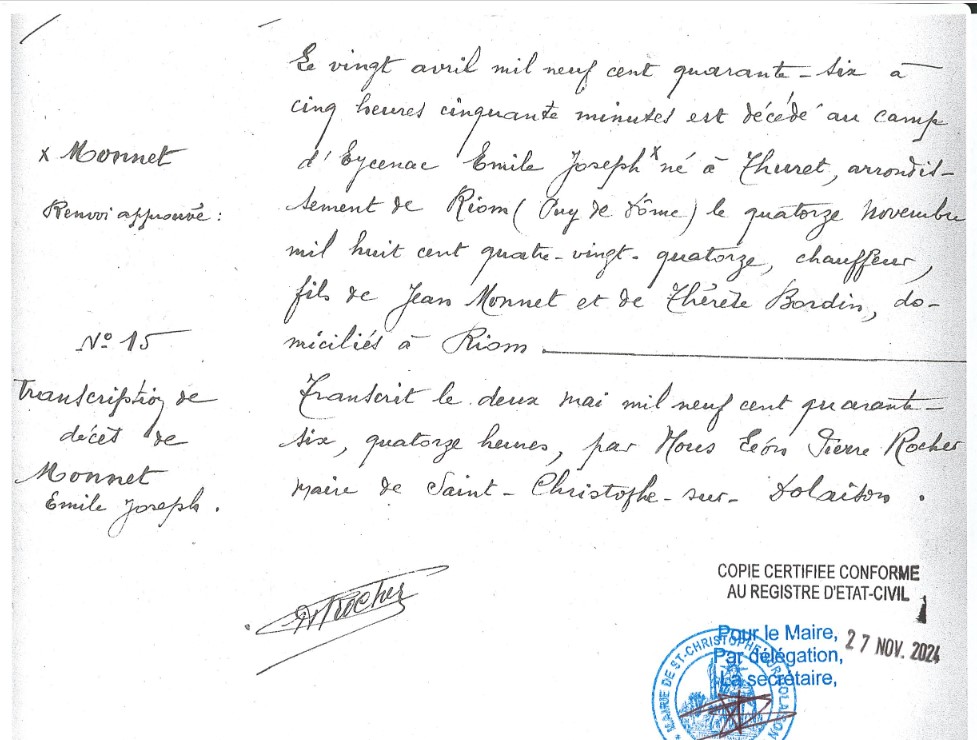 Le vingt avril mil neuf cent quarante-six à
cinq heures cinquante minutes est décédé au camp
x Monnet
d'Eycenac Emile Joseph x né à Thuret, arrondis-
Renvoi approuvé :
sement de Riom (Puy de Dôme) le quatorze novembre
mil huit cent quatre-vingt-quatorze, chauffeur,
fils de Jean Monnet et de Thérèse Bordin, do-
miciliés à Riom
N° 15
Transcription de
décès de
Monnet
Emile Joseph.
Transcrit le deux mai mil neuf cent quarante-
six, quatorze heures, par Nous Léon Pierre Rocher
maire de Saint-Christophe-sur-Dolaison.
Rocher
COPIE CERTIFIEE CONFORME
AU REGISTRE D'ETAT-CIVIL
Pour le Maire,
Par délégation,
La secrétaire,
27 NOV. 2024
MAIRIE DE ST-CHRISTOPHE-SUR-DOLAISON